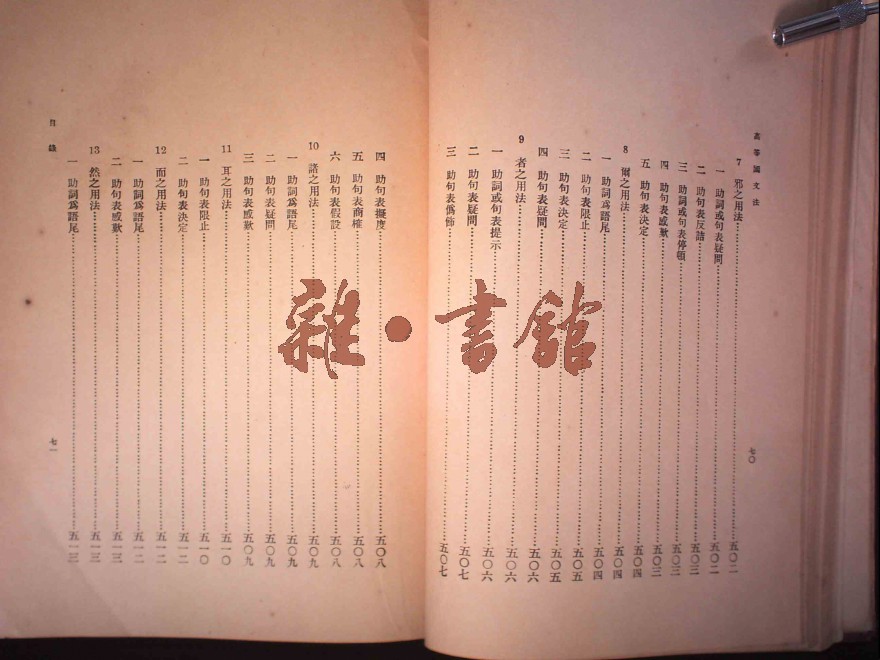 高等國文法
7 邪之用法……五〇二
一 助詞或句表疑問……五〇二
二 助句表反詰……五〇三
三 助詞或句表停頓……五〇三
四 助句表感歎……五〇三
五 助句表決定……五〇四
8 爾之用法……五〇四
一 助詞爲語尾……五〇四
二 助句表限止……五〇五
三 助句表決定……五〇五
四 助句表疑問……五〇六
9 者之用法……五〇六
一 助詞或句表提示……五〇六
二 助句表疑問……五〇七
三 助句表僞飾……五〇七
七〇
四 助句表擬度……五〇八
五 助句表商榷……五〇八
六 助句表假設……五〇八
10 諸之用法……五〇九
一 助詞爲語尾……五〇九
二 助句表疑問……五〇九
三 助句表感歎……五〇九
11 耳之用法……五一〇
一 助句表限止……五一〇
二 助句表決定……五一二
12 而之用法……五一二
一 助詞爲語尾……五一二
二 助句表感歎……五一三
13 然之用法……五一三
一 助詞爲語尾……五一三
目錄
七一
雜·書館